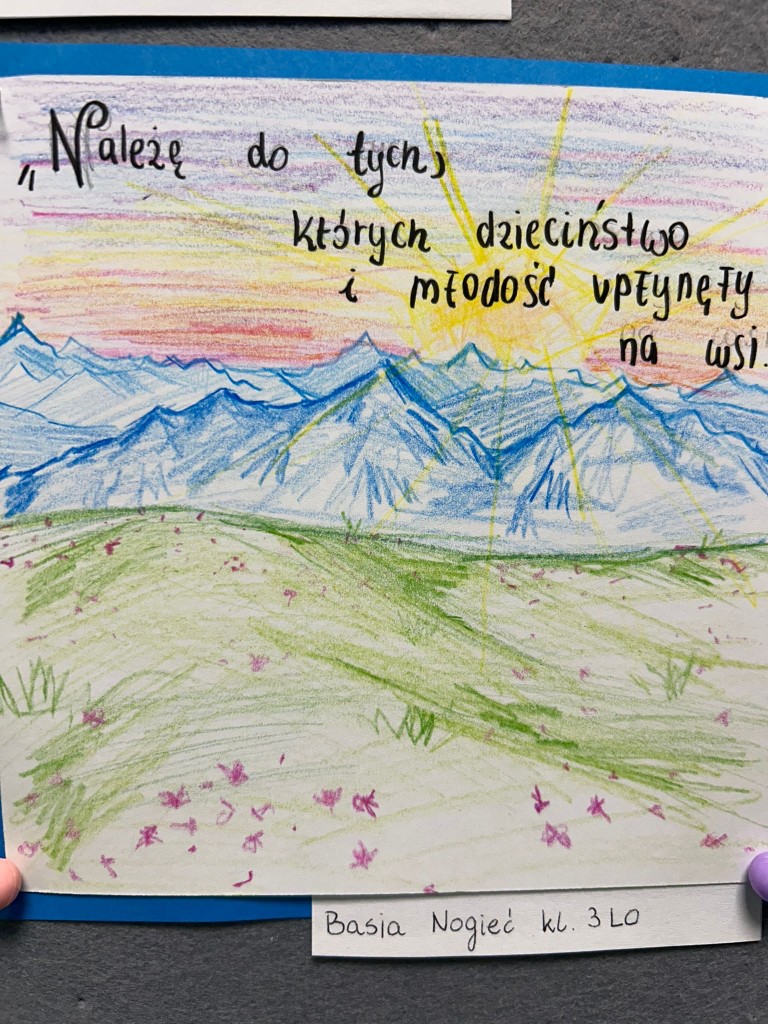 „Należę do tych,
których dzieciństwo
i młodość upłynęły
na wsi.
Basia Nogieć kl. 3 LO